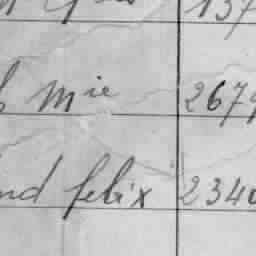 137
Mie 2679
nd felix 2340